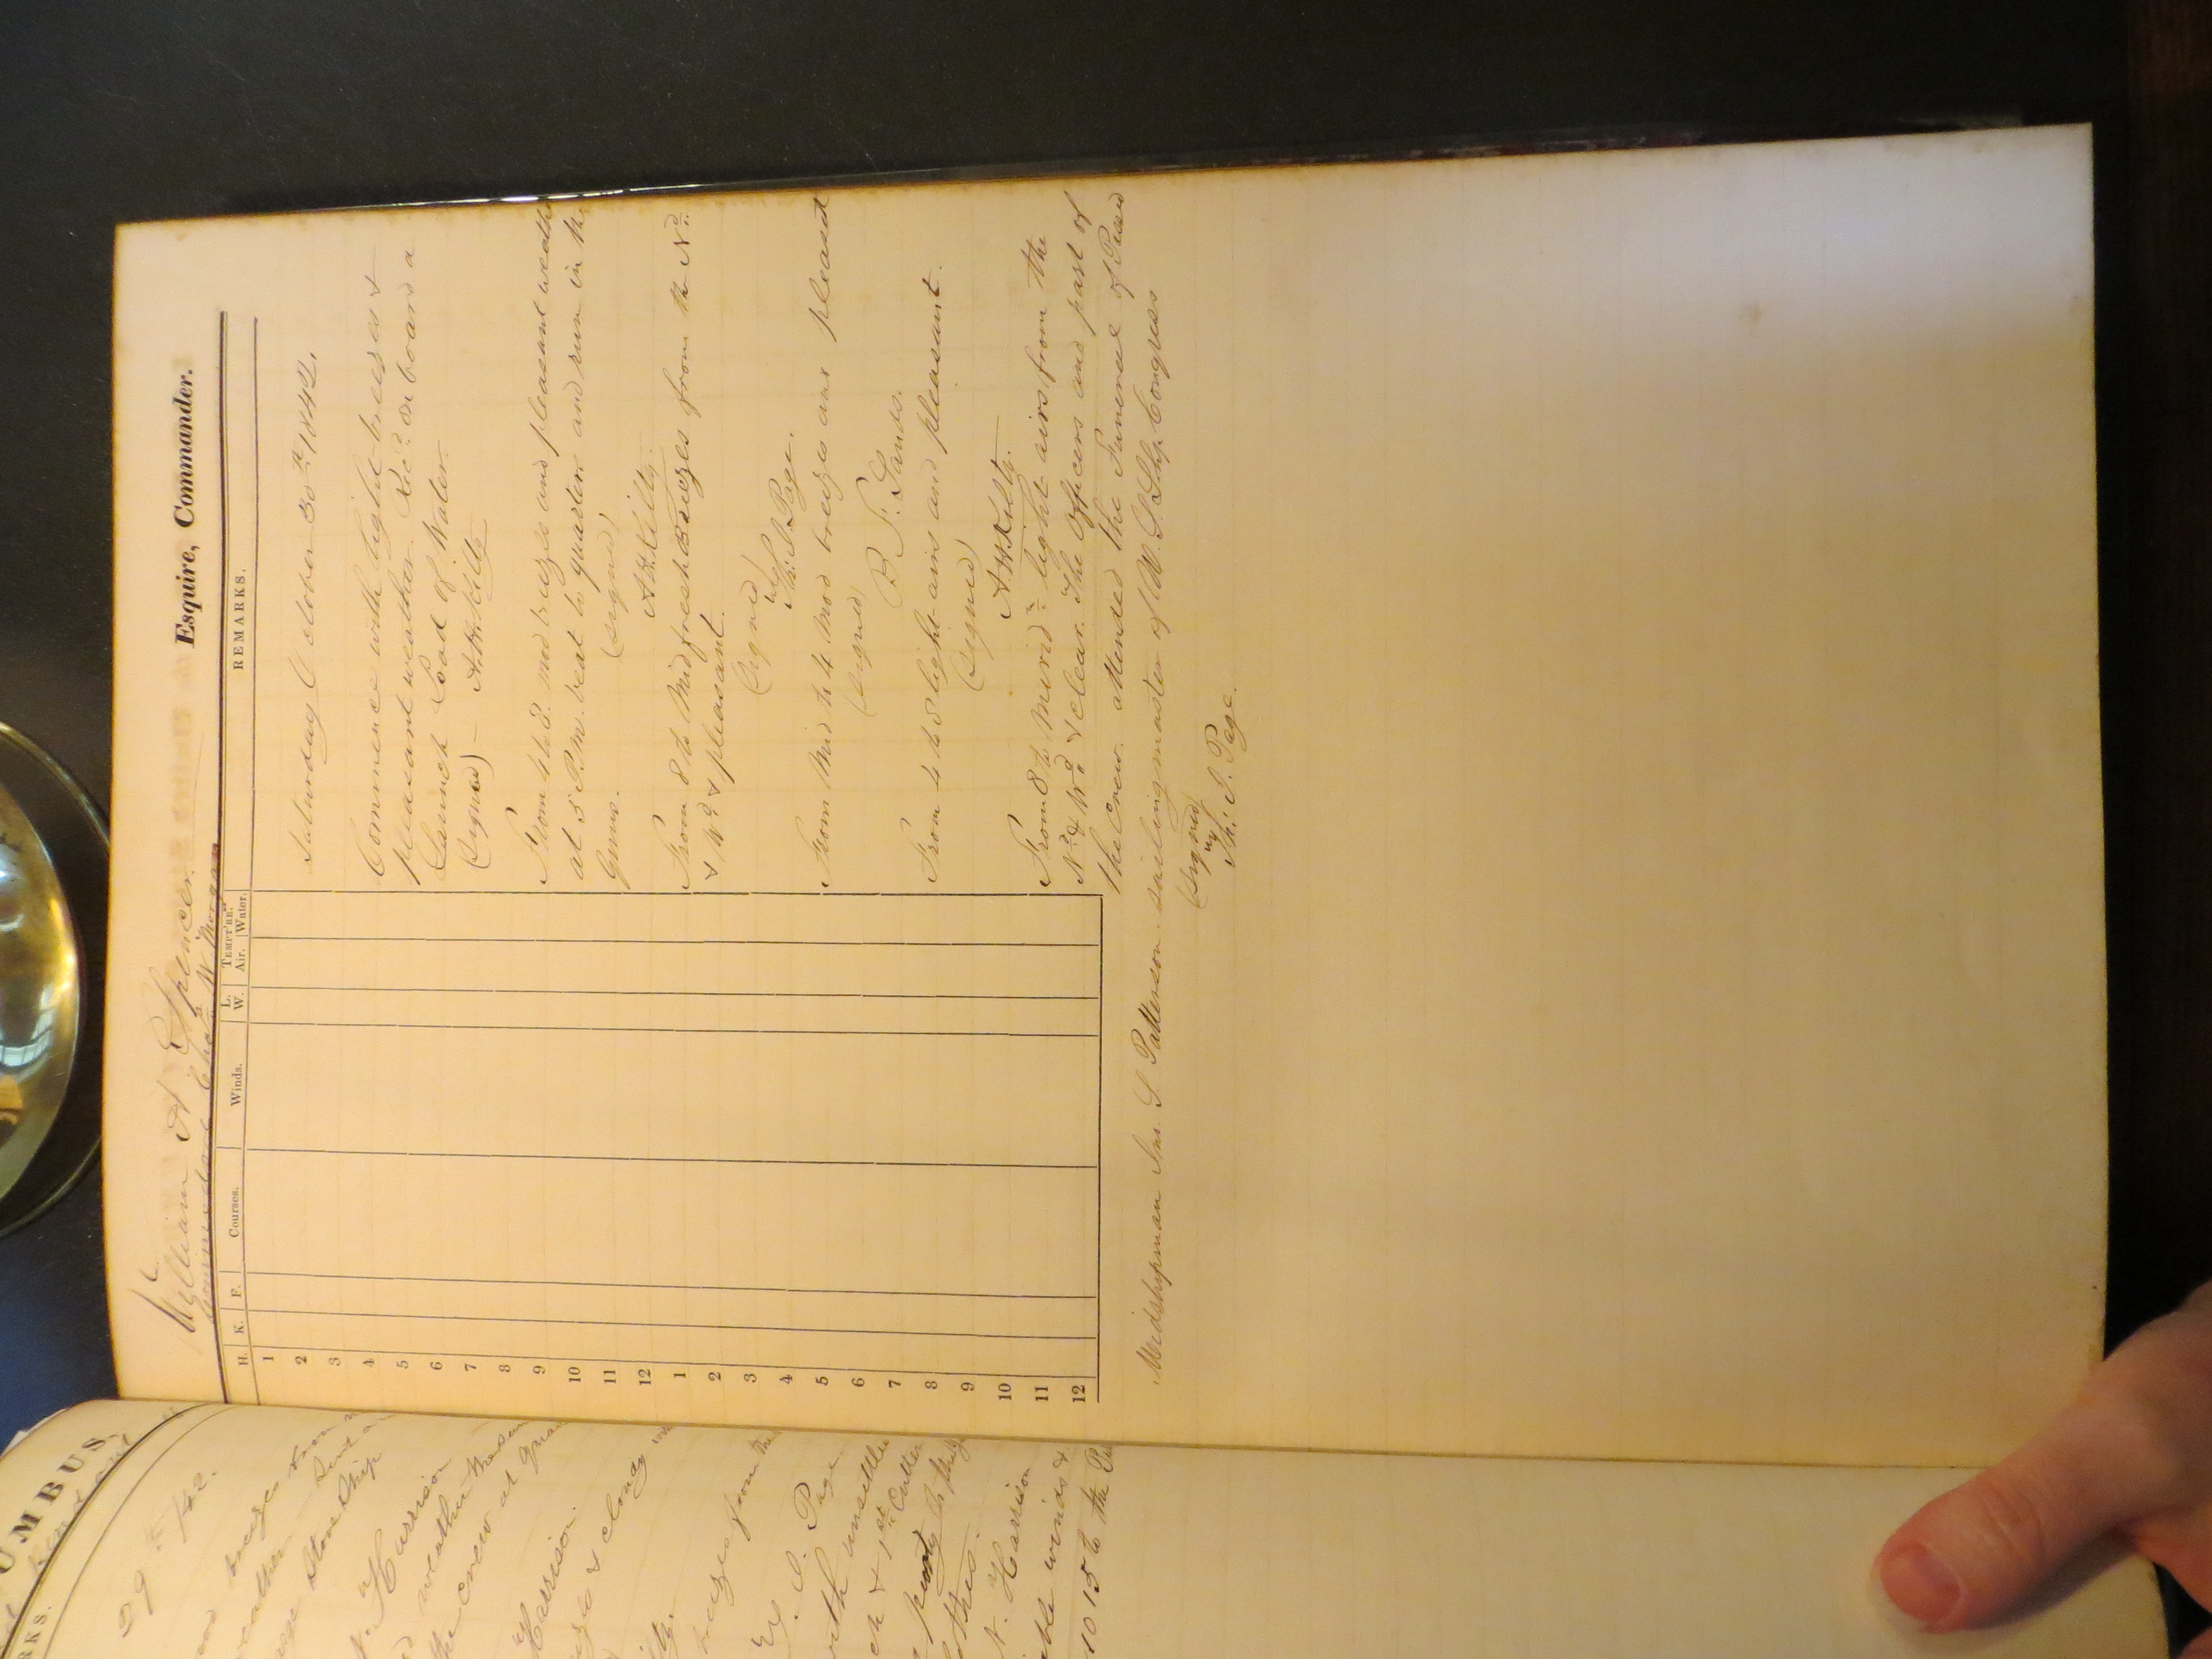 William A Spencer Esquire, Commander.
Commodore Chas W Morgan
H. K. F. Courses. Winds. L. W. TEMPT'RE. Air. Water. REMARKS.
1
2
3
4
5
6
7
8
9
10
11
12
1
2
3
4
5
6
7
8
9
10
11
12
Saturday October 30th 1842.
Commence with light breezes &
pleasant weather. Recd. on board a
Launch Load of Water.
(Signed) - A.H. Kilty
From 4 to 8. mod breezes and pleasant weathe
at 5 P.M. beat to quarters and run in the
Guns. (signed)
A.H. Kilty.
From 8 to Mid fresh Breezes from the Nd.
& Wd & pleasant.
(Signed)
Th: J. Page.
From Mid to 4 Mod breezes and pleasant
(signed)
B. F. Sands.
From 4 to 8 light airs and pleasant.
(Signed)
A.H. Kilty.
From 8 to Merid n light airs from the
Nd & Wd & clear. The Officers and part of
the crew attended the Funeral of Passed
Midshipman Jno. S Patterson. sailing master of U.S. Ship Congress
(Signed)
Th: J. Page.
UMBUS,
RKS.
29th /42.
breezes from
weather
Store Ship
Harrison
weather
the crew at
Harrison.
& cloudy
breezes from the
J. Page
with unsettled
& 1st Cutter
party to
Harrison
winds &
10 15 to the